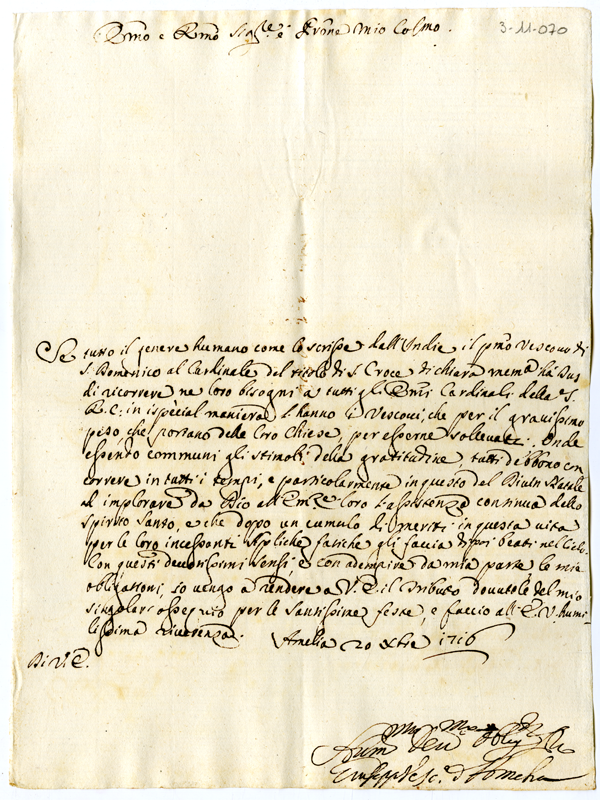 Emo e Rmo Sigre e Prone mio Colmo.
3-11-070
Se tutto il genere humano come lo scrisse dall'Indie il pmo Vescovo di
S. Domenico al Cardinale del titolo di S. Croce di chiara mema hà Ius
di ricorrere ne loro bisogni à tutti gli Emi Cardinali della S.
R. C: in ispècial maniera l'hanno li Vescovi, che per il gravissimo
peso, che portano delle loro Chiese, per esserne sollevati. Onde
essendo communi gli stimoli della gratitudine, tutti debbono con
correre in tutti i tempi, e particolarmente in questo del Divin Natale
ad implorare da Dio all'Emze loro l'assistenza continua dello
Spirito Santo, e che dopo un cumulo di meriti in questa vita
per le loro incessanti Apliche fatiche gli faccia di poi beati nel Cielo.
Con questi devotissimi sensi, e con adempire da mia parte le mie
obligationi, io vengo à rendere a V. E. il tributo dovutole del mio
singolar ossequio per le santissime feste, e faccio all'E. V. humi-
lissima riverenza.
Amelia 20 Xbre 1716
Di V. E.
Humo Devo Obligo
Giuseppe Vesco d'Amelia